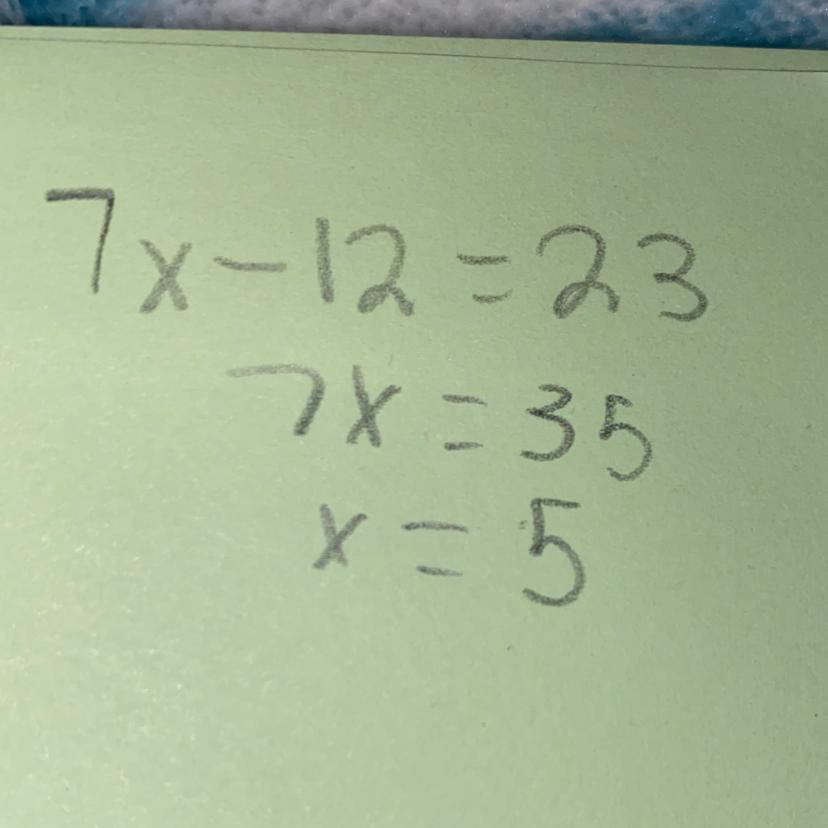 7x-12=23
7x=35
x=5